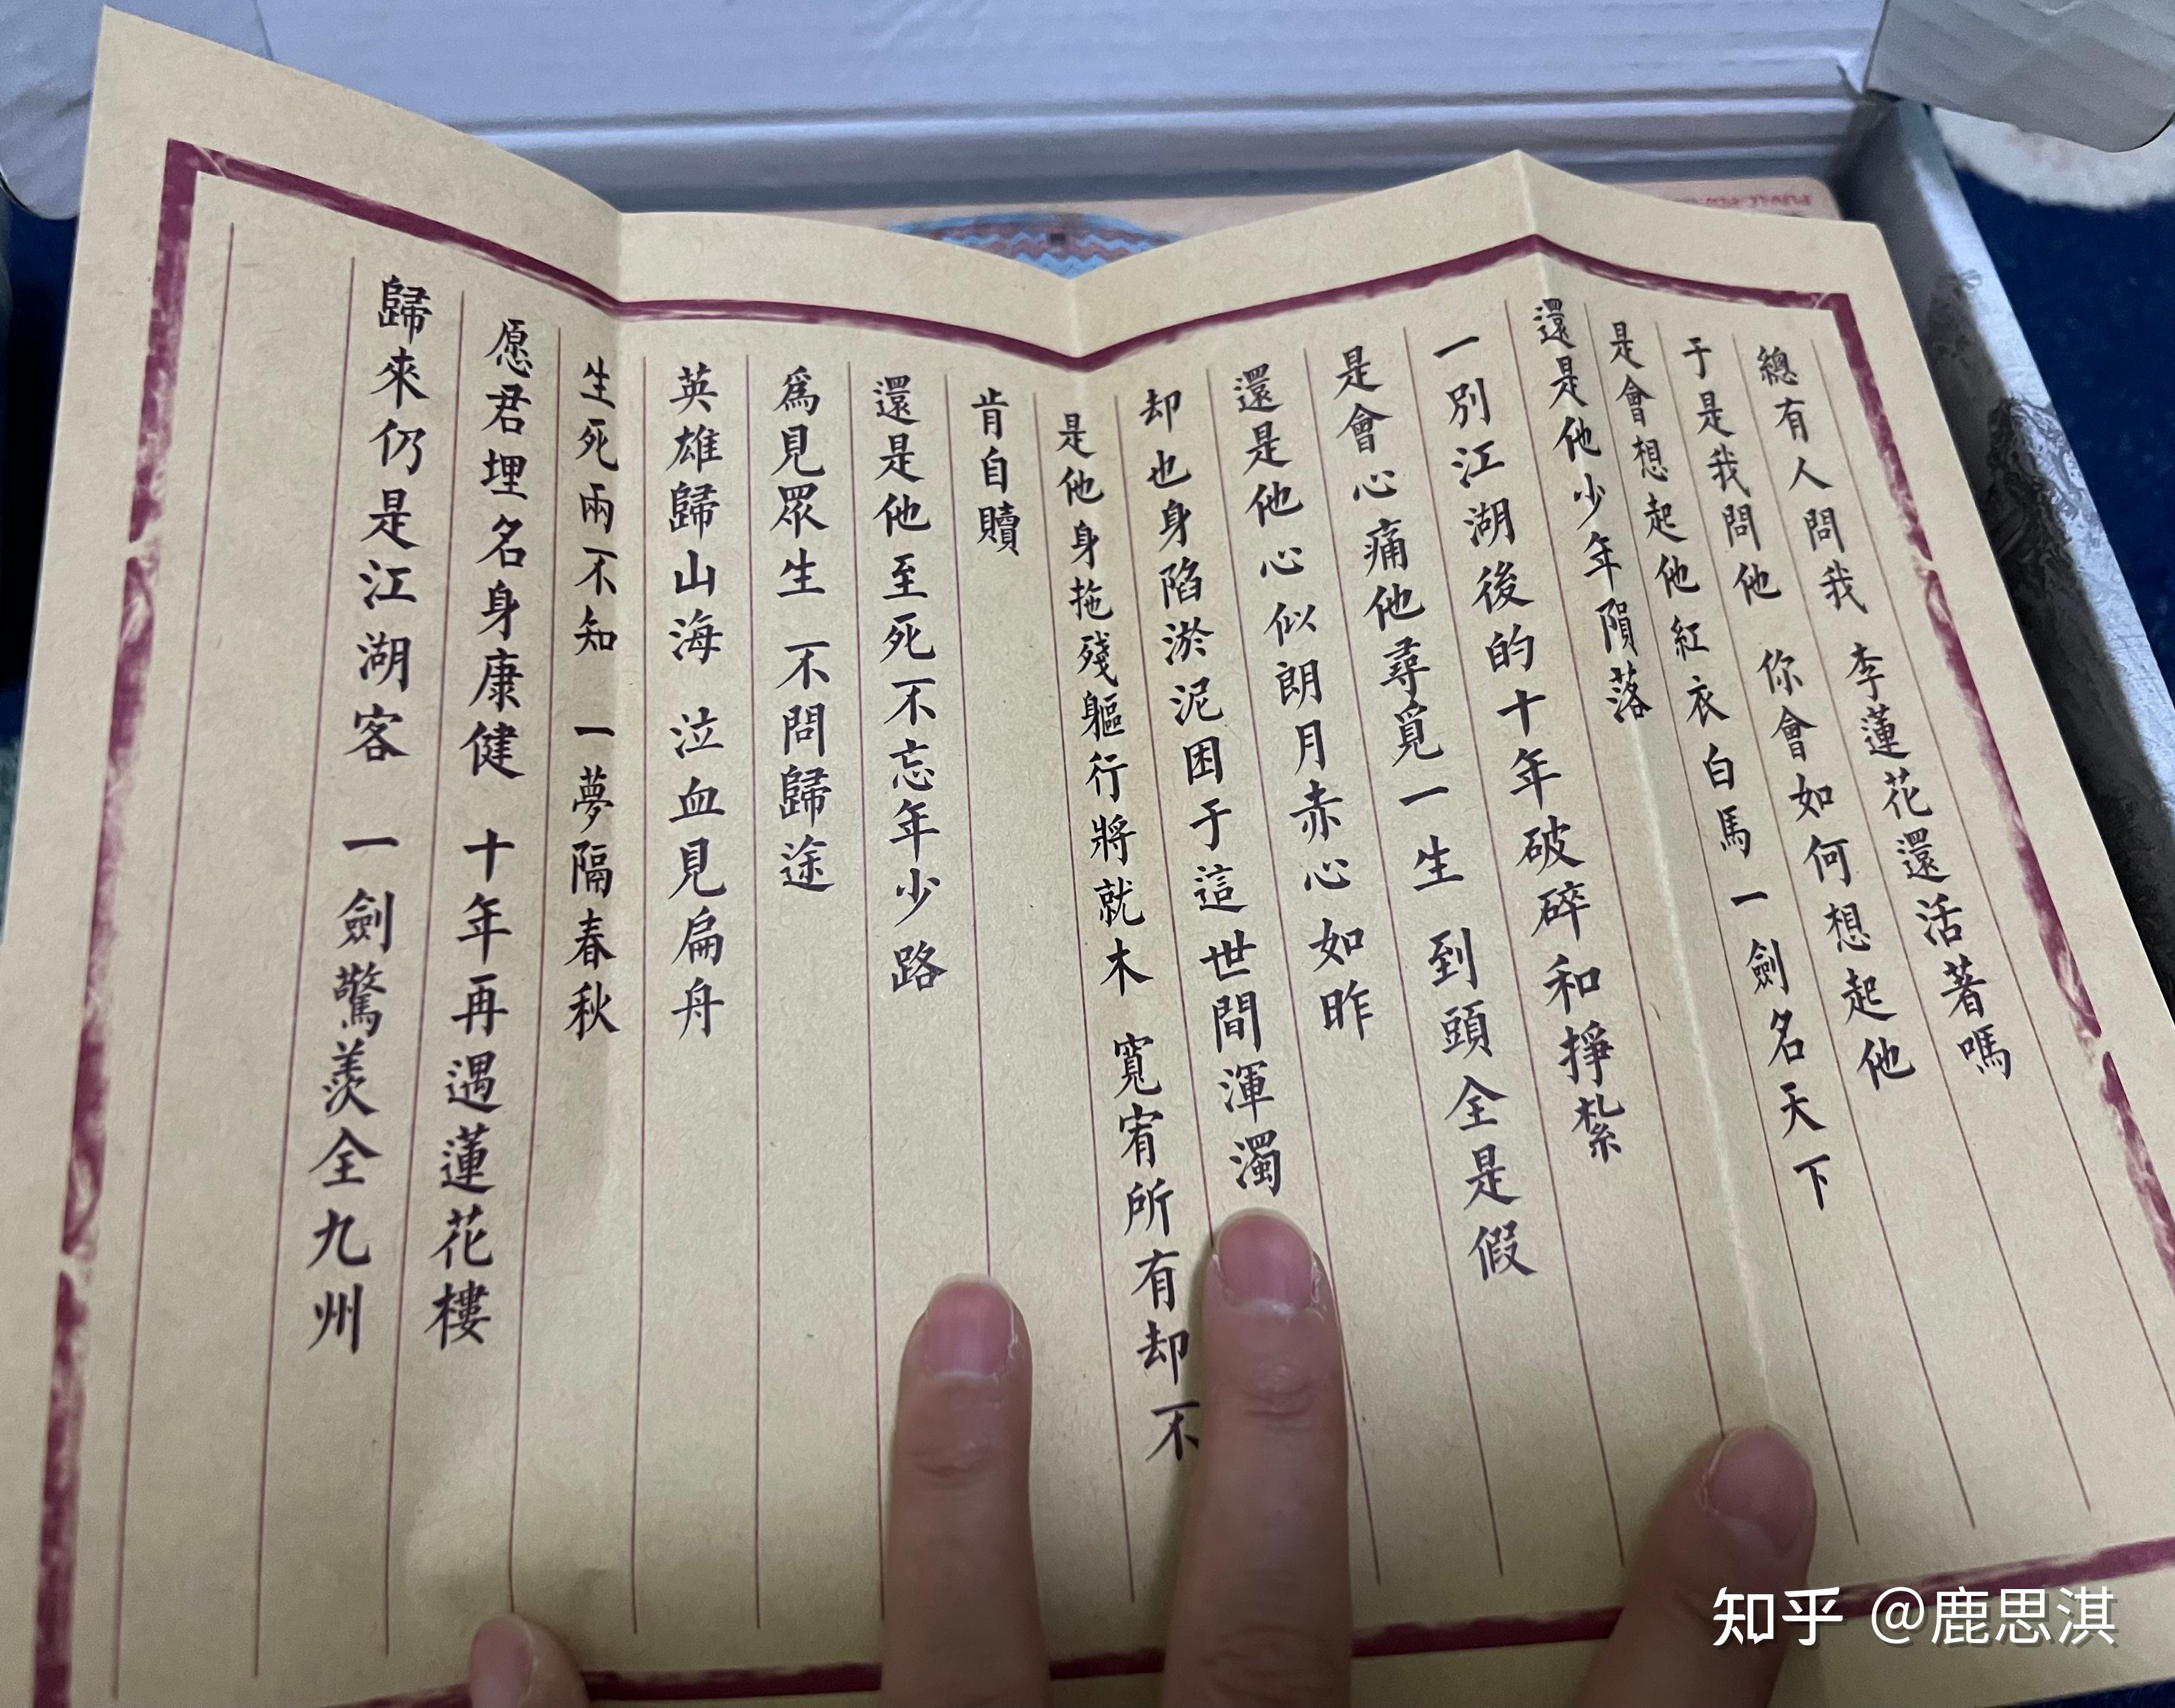 總有人問我 李蓮花還活著嗎
于是我問他 你會如何想起他
是會想起他紅衣白馬一劍名天下
還是他少年隕落
一別江湖後的十年破碎和掙紮
是會心痛他尋覓一生 到頭全是假
還是他心似朗月赤心如昨
却也身陷淤泥困于這世間渾濁
是他身拖殘軀行將就木 寬宥所有却不
肯自贖
還是他至死不忘年少路
爲見眾生 不問歸途
英雄歸山海 泣血見扁舟
生死兩不知 一夢隔春秋
愿君埋名身康健 十年再遇蓮花樓
歸來仍是江湖客 一劍驚羨全九州
知乎 @鹿思淇